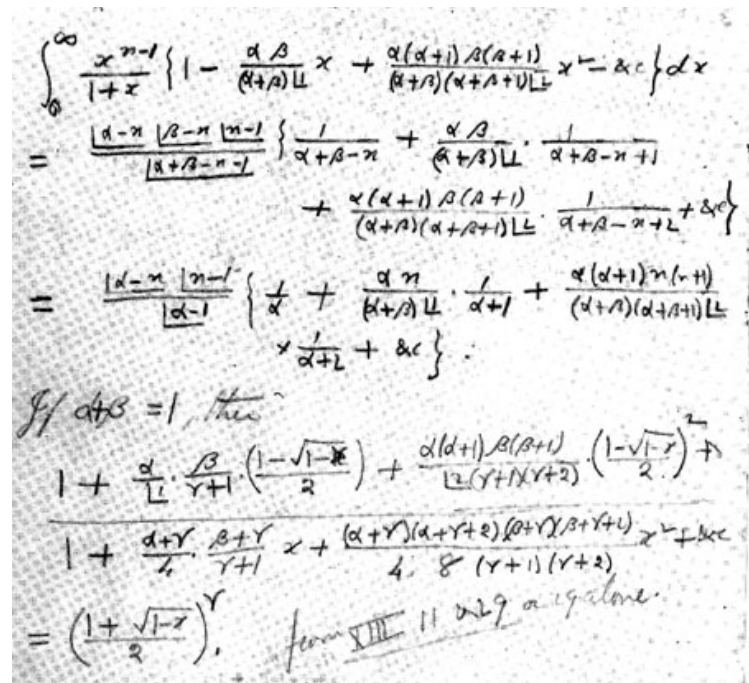 ∫₀^∞ x^{n-1}/(1+x) {1 - αβ/((α+β)|1) x + α(α+1)β(β+1)/((α+β)(α+β+1)|2) x² - &c} dx
= |α-n |β-n |n-1 / |α+β-n-1 {1/(α+β-n) + αβ/((α+β)|1) · 1/(α+β-n+1)
+ α(α+1)β(β+1)/((α+β)(α+β+1)|2) · 1/(α+β-n+2) + &c}
= |α-n |n-1 / |α-1 {1/α + αn/((α+β)|1) · 1/(α+1) + α(α+1)n(n+1)/((α+β)(α+β+1)|2)
× 1/(α+2) + &c}.
If α+β = 1, then
1 + α/|1 · β/(γ+1) · ((1-√(1-x))/2) + α(α+1)β(β+1)/(|2(γ+1)(γ+2)) · ((1-√(1-x))/2)² +
1 + (α+γ)/4 · (β+γ)/(γ+1) x + (α+γ)(α+γ+2)(β+γ)(β+γ+2)/(4. 8 (γ+1)(γ+2)) x² + &c
= ((1+√(1-x))/2)^γ. from XIII 11